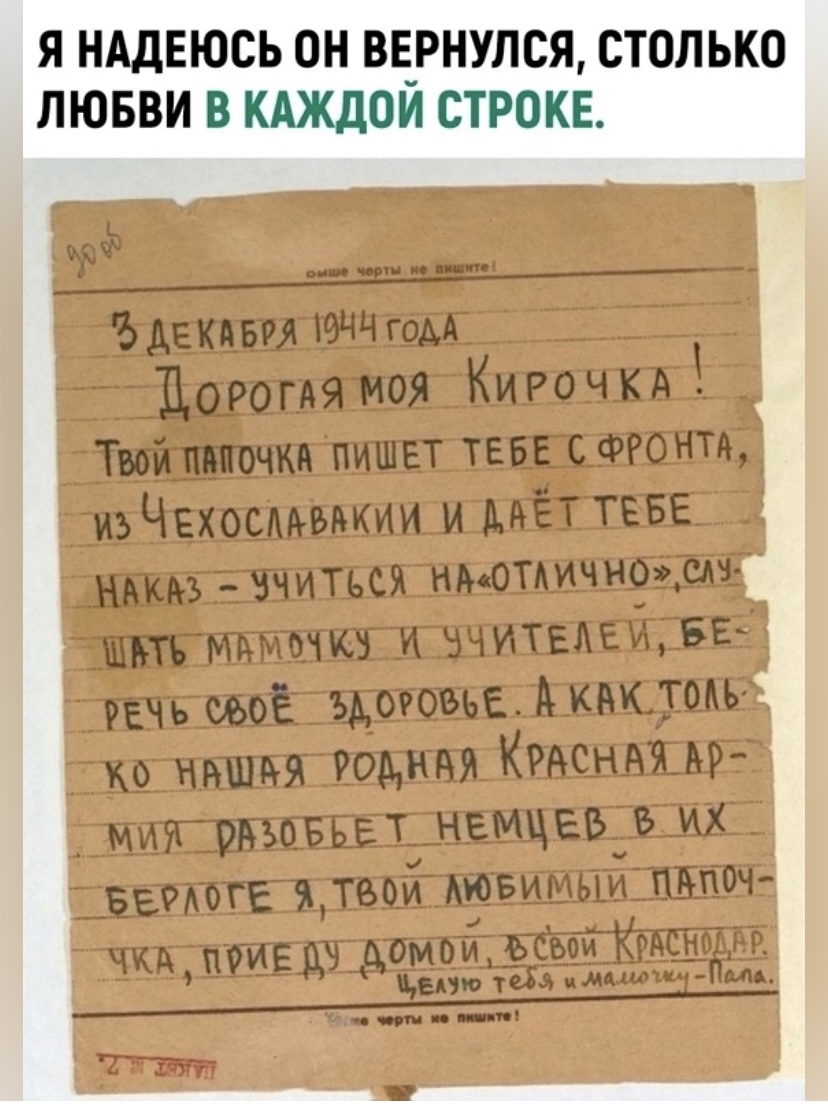 Я НАДЕЮСЬ ОН ВЕРНУЛСЯ, СТОЛЬКО
ЛЮБВИ В КАЖДОЙ СТРОКЕ.
выше черты не пишите!
3 ДЕКАБРЯ 1944 ГОДА
ДОРОГАЯ МОЯ КИРОЧКА!
ТВОЙ ПАПОЧКА ПИШЕТ ТЕБЕ С ФРОНТА,
ИЗ ЧЕХОСЛАВАКИИ И ДАЁТ ТЕБЕ
НАКАЗ – УЧИТЬСЯ НА «ОТЛИЧНО», СЛУ-
ШАТЬ МАМОЧКУ И УЧИТЕЛЕЙ, БЕ-
РЕЧЬ СВОЁ ЗДОРОВЬЕ. А КАК ТОЛЬ-
КО НАШАЯ РОДНАЯ КРАСНАЯ АР-
МИЯ РАЗОБЬЕТ НЕМЦЕВ В ИХ
БЕРЛОГЕ Я, ТВОЙ ЛЮБИМЫЙ ПАПОЧ-
ЧКА, ПРИЕДУ ДОМОЙ, В СВОЙ КРАСНОДАР.
ЦЕЛУЮ тебя и мамочку – Папа.
черты не пишите!
ПАКЕТ № 7.